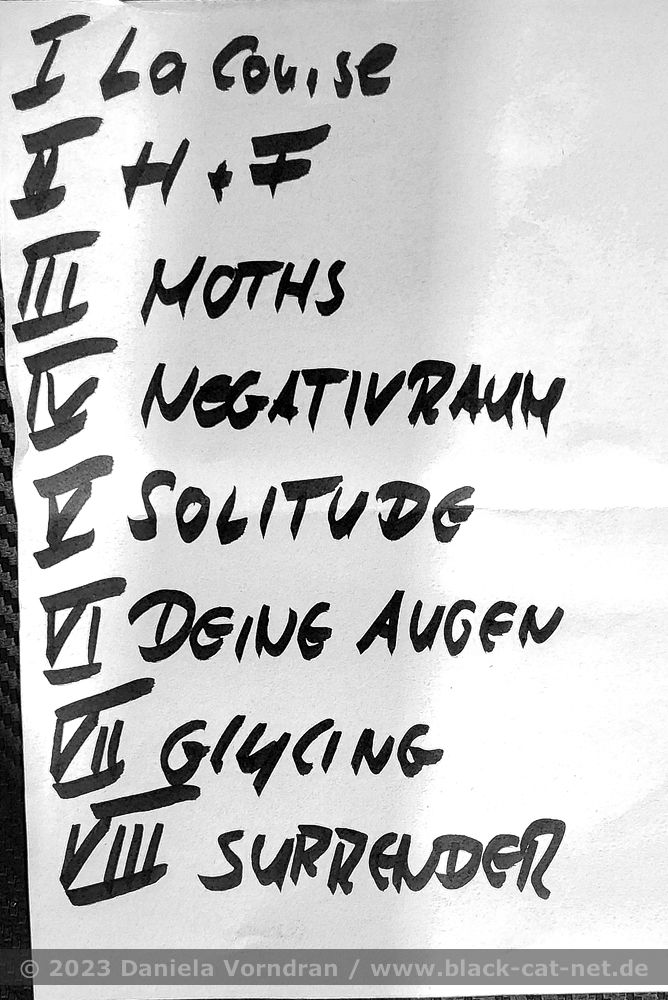 I La Couise
II H + F
III MOTHS
IV NEGATIVRAUM
V SOLITUDE
VI DEINE AUGEN
VII GlyCINE
VIII SURRENDER
© 2023 Daniela Vorndran / www.black-cat-net.de